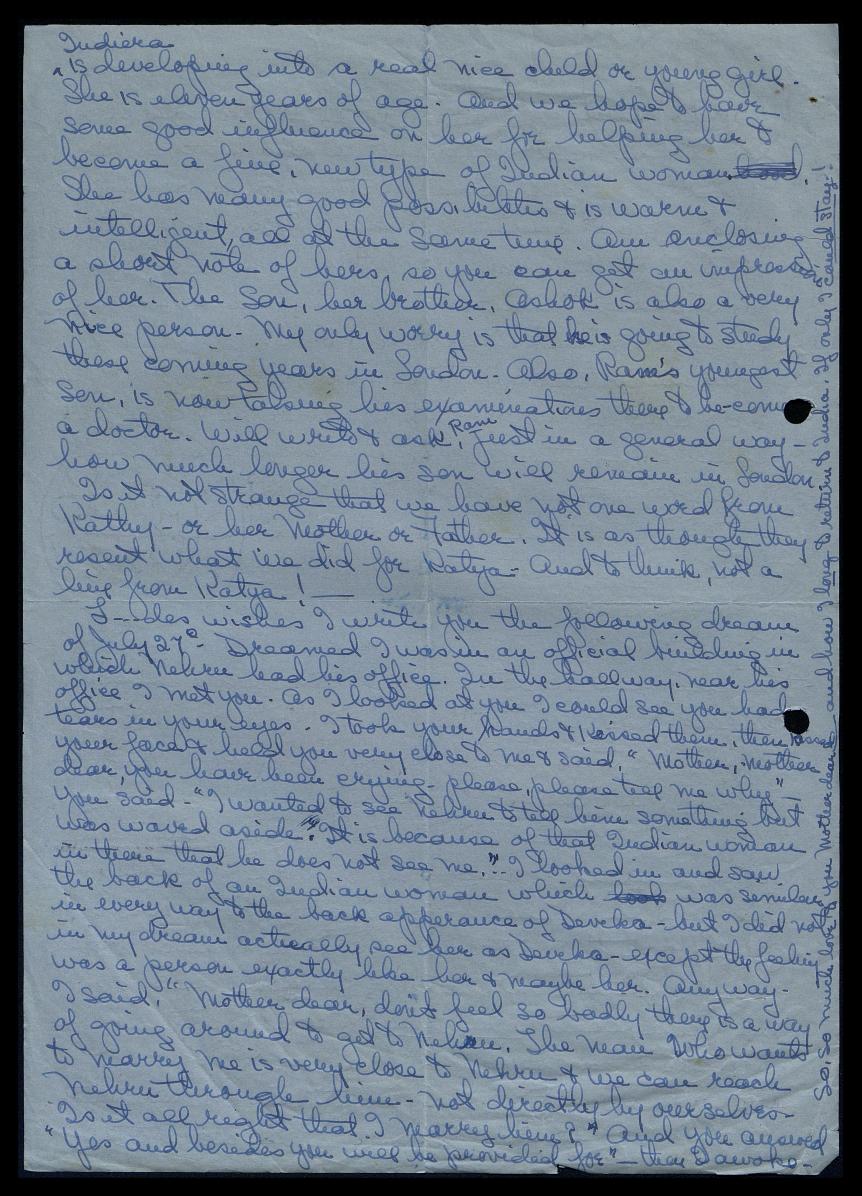 Indiera
^ is developing into a real nice child or young girl.
She is eleven years of age. And we hope to have
some good influence on her for helping her to
become a fine, new type of Indian woman.
She has many good possibilities & is warm &
intelligent, all at the same time. Am enclosing
a short note of hers, so you can get an impression
of her. The Son, her brother, Ashok is also a very
nice person - My only worry is that he is going to study
these coming years in London - Also, Ram's youngest
son, is now taking his examinations there to be-come
a doctor. Will write & ask Ram, just in a general way -
how much longer his son will remain in London.
Is it not strange that we have not one word from
Kathy - or her Mother or Father. It is as though they
resent what we did for Katya - And to think, not a
line from Katya! —
I---des wishes I write you the following dream
of July 27e - Dreamed I was in an official building in
which Nehru had his office. In the hallway, near his
office I met you. As I looked at you I could see you had
tears in your eyes. I took your hands & kissed them, then kissed
your face & held you very close to me & said, "Mother, Mother
dear, you have been crying - please, please tell me why" -
You said - "I wanted to see Nehru to tell him something but
was waved aside. It is because of that Indian woman
in there that he does not see me." - I looked in and saw
the back of an Indian woman which was similar
in every way to the back apperance of Deveka - but I did not
in my dream actually see her as Deveka - except the feeling
was a person exactly like her & maybe her. Anyway -
I said, "Mother dear, don't feel so badly there is a way
of going around to get to Nehru. The man who wants
to marry me is very close to Nehru & we can reach
Nehru through him - not directly by ourselves -
Is it all right that I marry him?" And you answered
"Yes and besides you will be provided for" - then I awoke -
So, so much love to you Mother dear - and how I long to return to India. If only I could stay!